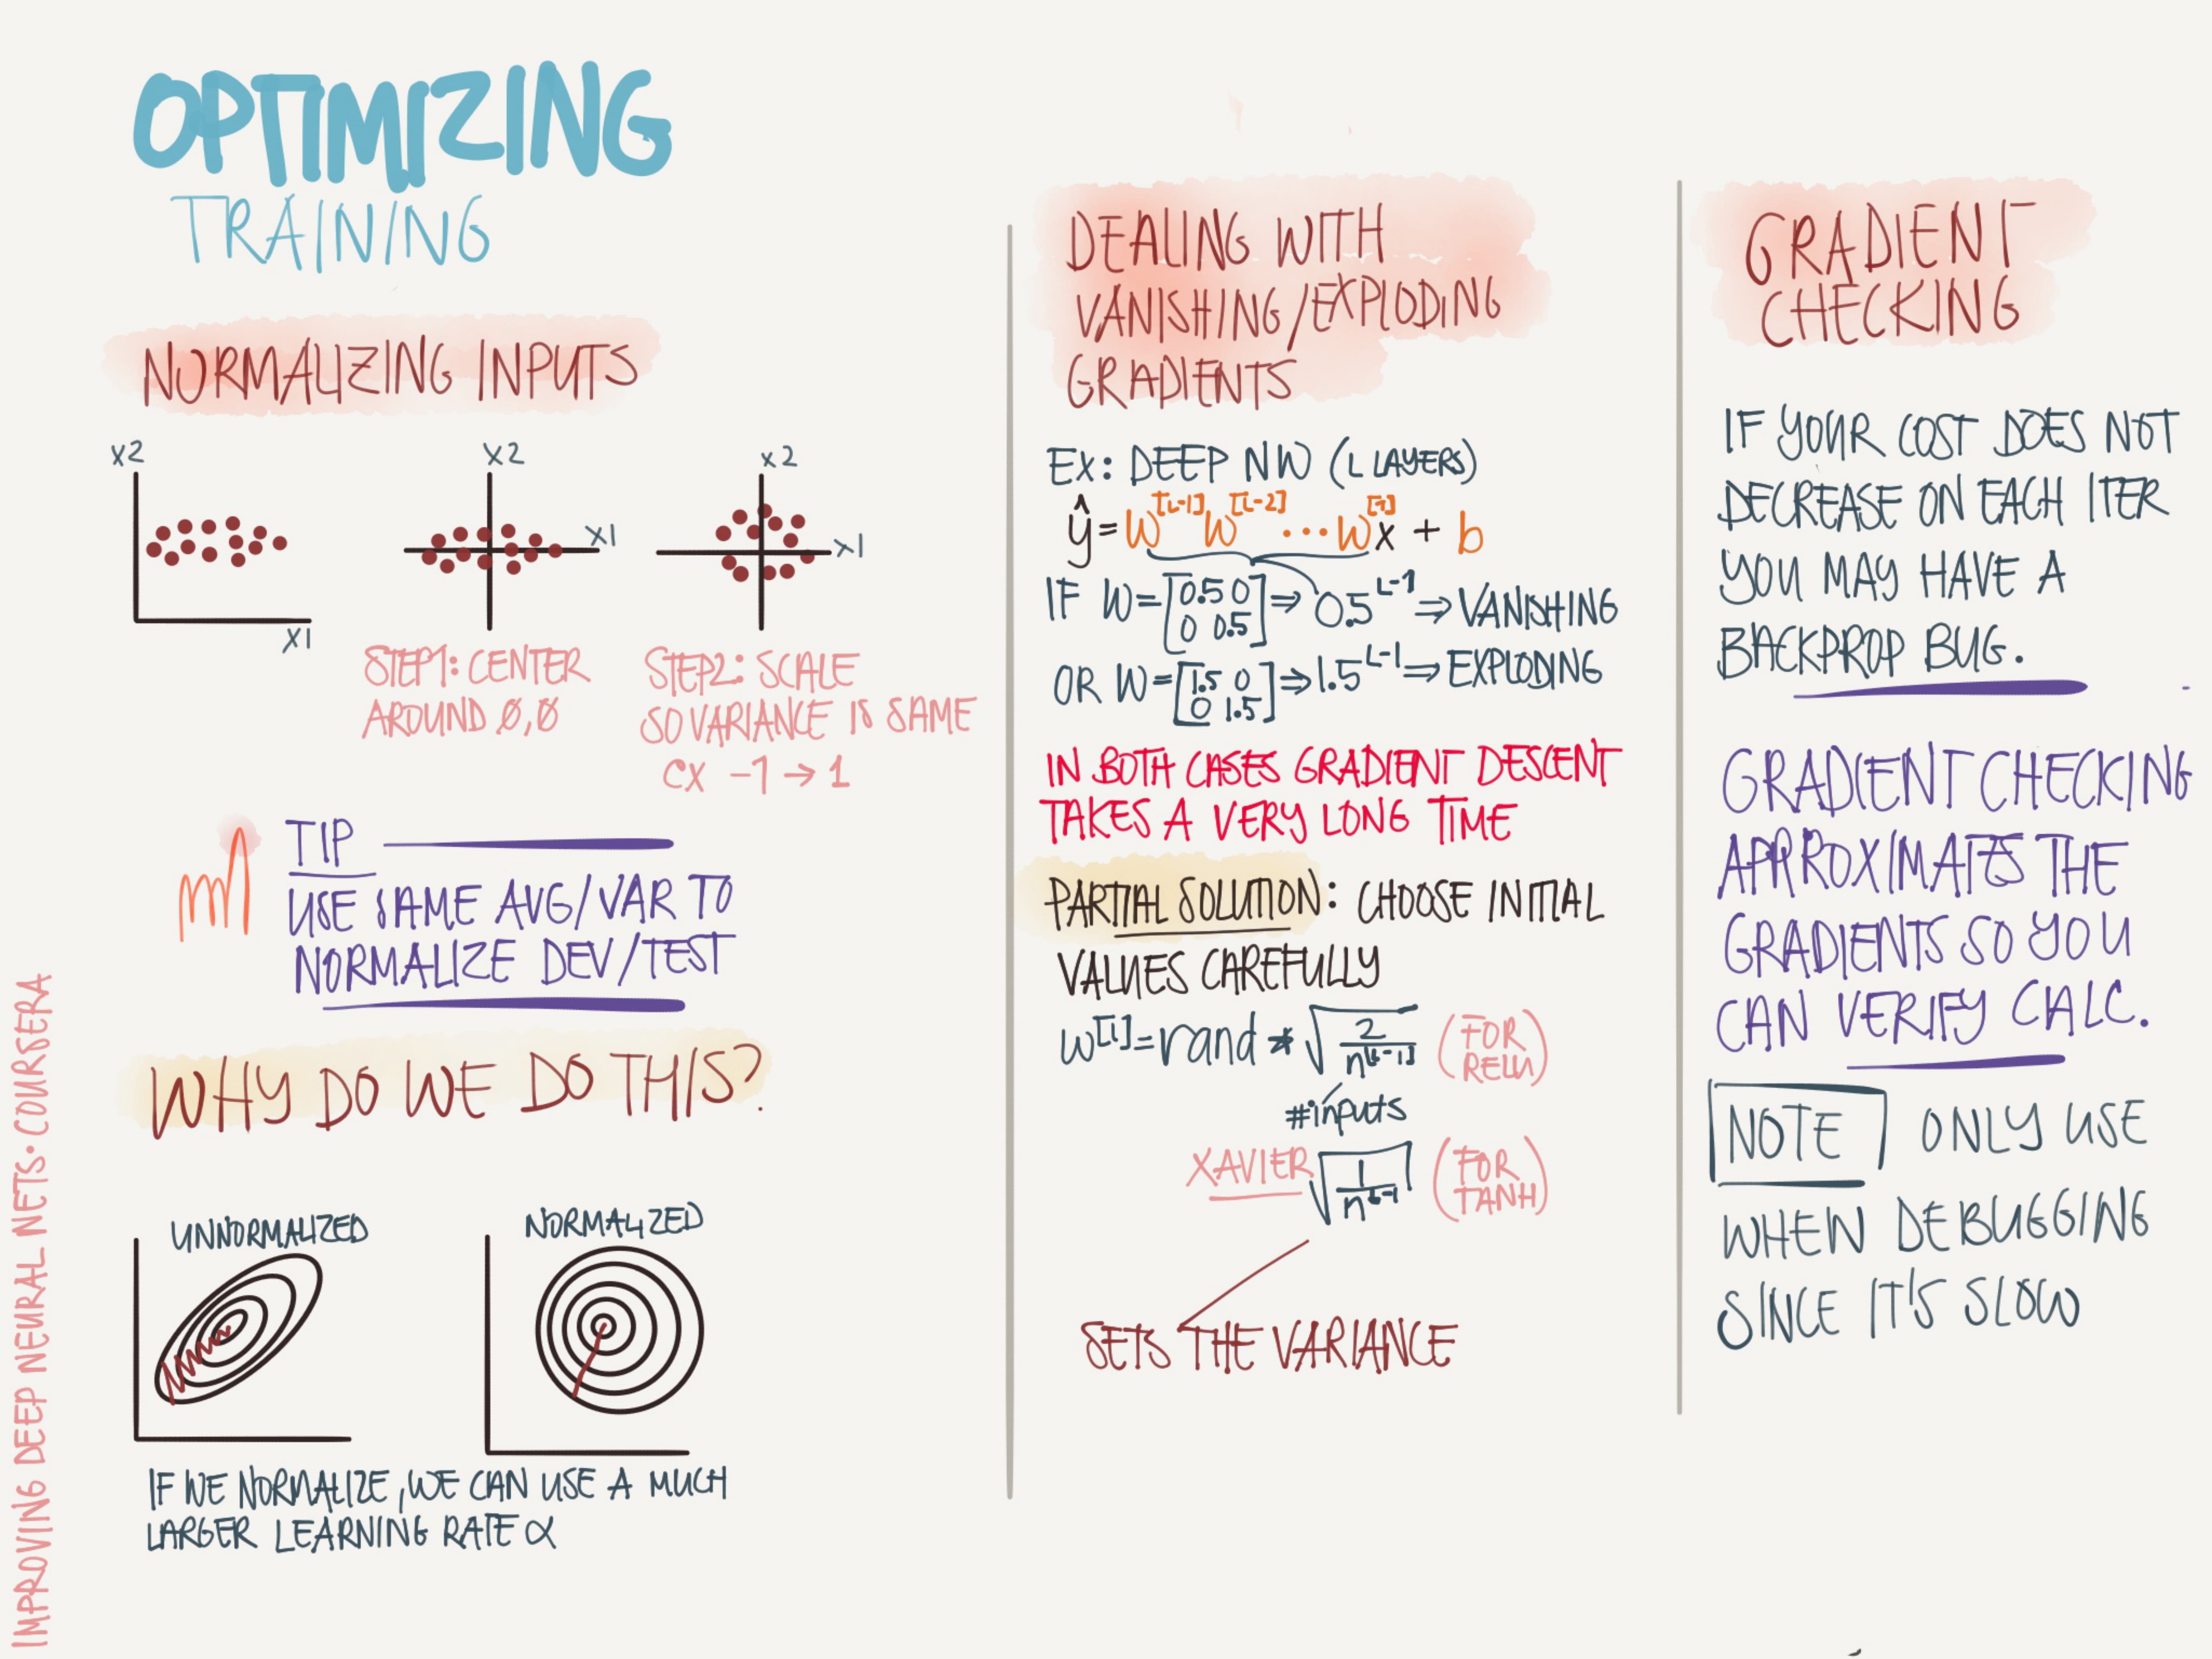 OPTIMIZING
TRAINING
NORMALIZING INPUTS
x2
x1
x2
x1
x2
x1
STEP1: CENTER
AROUND 0,0
STEP2: SCALE
SO VARIANCE IS SAME
EX -1 → 1
TIP
USE SAME AVG/VAR TO
NORMALIZE DEV/TEST
WHY DO WE DO THIS?
UNNORMALIZED
NORMALIZED
IF WE NORMALIZE, WE CAN USE A MUCH
LARGER LEARNING RATE α
DEALING WITH
VANISHING/EXPLODING
GRADIENTS
EX: DEEP NW (L LAYERS)
ŷ = W^[L-1] W^[L-2] ... W^[1] x + b
IF W = [0.5 0 ⇒ 0.5^L-1 ⇒ VANISHING
0 0.5]
OR W = [1.5 0 ⇒ 1.5^L-1 ⇒ EXPLODING
0 1.5]
IN BOTH CASES GRADIENT DESCENT
TAKES A VERY LONG TIME
PARTIAL SOLUTION: CHOOSE INITIAL
VALUES CAREFULLY
W^[l] = rand * √(2/n^[l-1]) (FOR
RELU)
#inputs
XAVIER √(1/n^l-1) (FOR
TANH)
SETS THE VARIANCE
GRADIENT
CHECKING
IF YOUR COST DOES NOT
DECREASE ON EACH ITER
YOU MAY HAVE A
BACKPROP BUG.
GRADIENT CHECKING
APPROXIMATES THE
GRADIENTS SO YOU
CAN VERIFY CALC.
NOTE ONLY USE
WHEN DEBUGGING
SINCE IT'S SLOW
IMPROVING DEEP NEURAL NETS • COURSERA